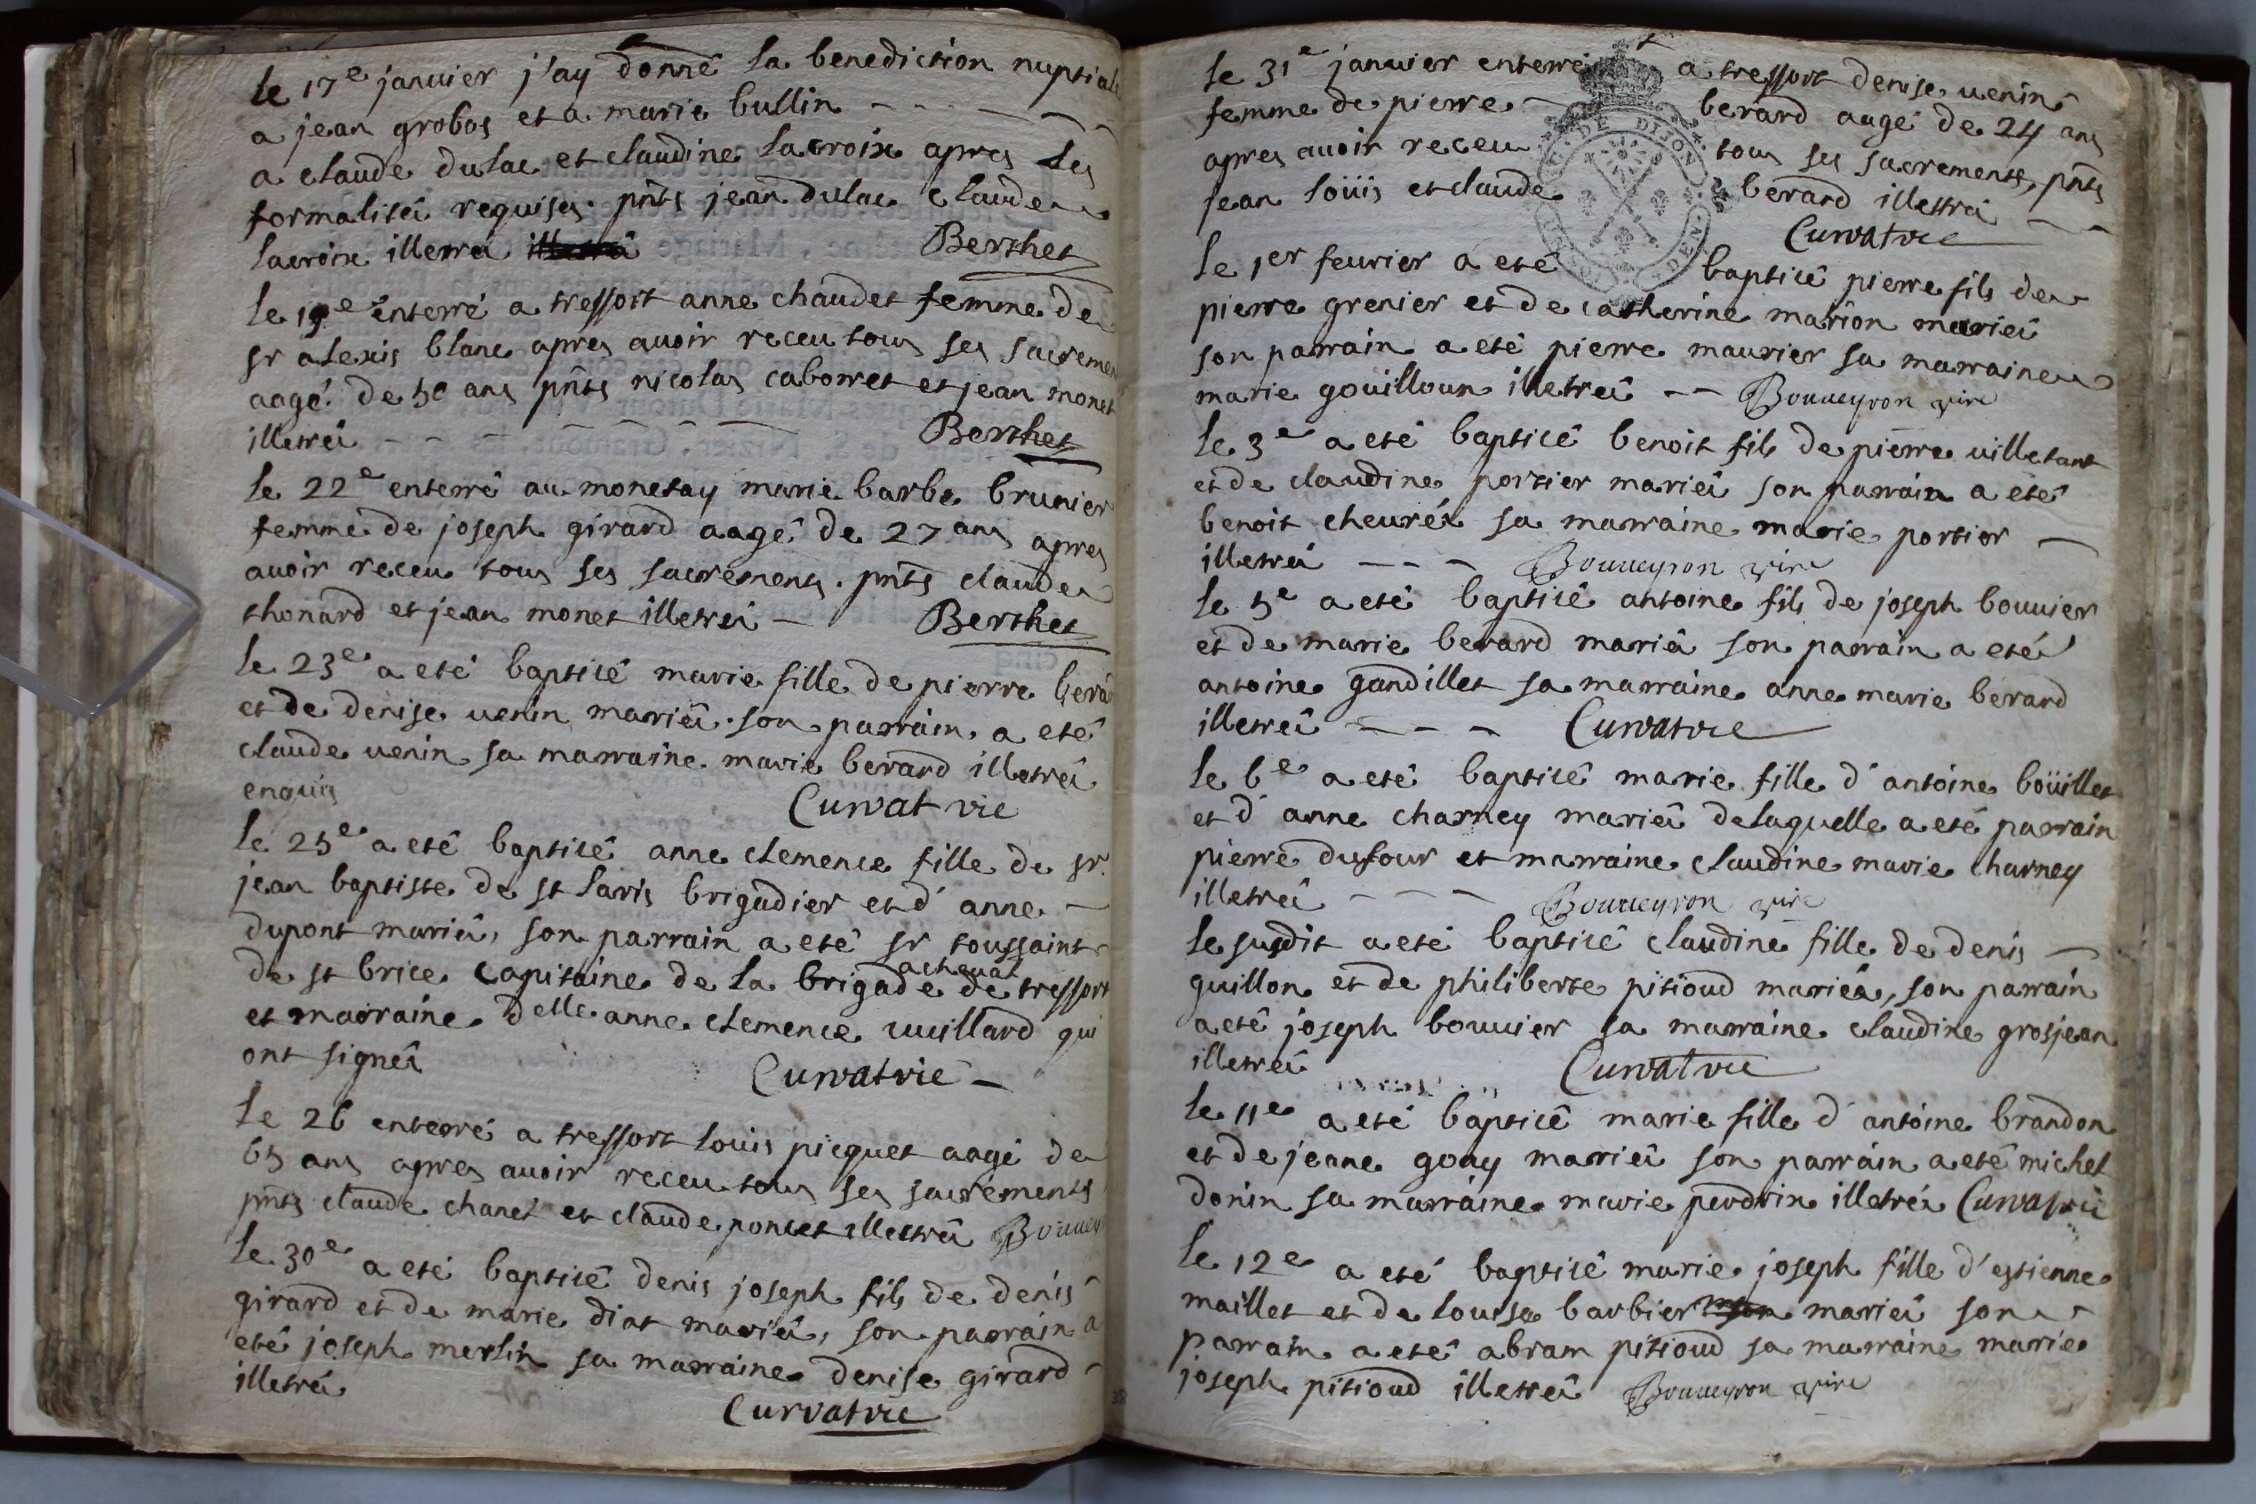 le 17e janvier j'ay donné la benediction nuptiale
a jean grobos et a marie bullin
a claude dulac et claudine lacroix apres les
formalitéz requises. pnts jean dulac claude
lacroix illetrez
Berthet
le 19e enterré a tressort anne chaudet femme de
sr alexis blanc apres avoir receu tous ses sacremen
aagé de 50 ans pnts nicolas caborret et jean monet
illetrez Berthet
le 22e enterré au monetay marie barbe brunier
femme de joseph girard aagé de 27 ans apres
avoir receu tous ses sacrements. pnts claude
thonard et jean monet illetrez Berthet
le 23e a eté baptisé marie fille de pierre bera
et de denise venin mariez. son parrain a eté
claude venin sa marraine marie berard illetrez
enquis Curvat vic
le 25e a eté baptisé anne clemence fille de sr
jean baptiste de st laris brigadier et d'anne
dupont mariez, son parrain a eté sr toussaint
a cheval
de st brice capitaine de la brigade de tressort
et marraine delle anne clemence vuillard qui
ont signéz Curvat vic
le 26 enterré a tressort louis picquet aagé de
65 ans apres avoir receu tous ses sacrements
pnts claude chanel et claude poncet illetrez Bouvey
le 30e a eté baptisé denis joseph fils de denis
girard et de marie diat mariez, son parrain a
eté joseph merlin sa marraine denise girard
illetrez
Curvat vic
le 31e janvier enterré a tressort denise venin
femme de pierre berard aagé de 24 ans
apres avoir receu tous ses sacrements, pnts
jean loüis et claude berard illetrez
Curvat vic
DE DIJON
le 1er fevrier a eté baptisé pierre fils de
pierre grenier et de catherine marion mariez
son parrain a eté pierre maurier sa marraine
marie gouilloux illetrez Bouveyron vire
le 3e a eté baptisé benoit fils de pierre villetant
et de claudine portier mariez son parrain a eté
benoit cheuréz sa marraine marie portier
illetrez Bouveyron vire
le 5e a eté baptisé antoine fils de joseph bouvier
et de marie berard mariez son parrain a eté
antoine gandillet sa marraine anne marie berard
illetrez Curvat vic
le 6e a eté baptisé marie fille d'antoine boüillet
et d'anne charney mariez de laquelle a eté parrain
pierre dufour et marraine claudine marie charney
illetrez Bouveyron vire
le susdit a eté baptisé claudine fille de denis
guillon et de philiberte pitioud mariez, son parrain
a eté joseph bouvier sa marraine claudine grosjean
illetrez Curvat vic
le 11e a eté baptisé marie fille d'antoine brandon
et de jeanne goay mariez son parrain a eté michel
donin sa marraine marie perdrix illetrez Curvat vic
le 12e a eté baptisé marie joseph fille d'estienne
maillet et de louise barbier mariez son
parrain a eté abram pitioud sa marraine marie
joseph pitioud illetrez Bouveyron vire